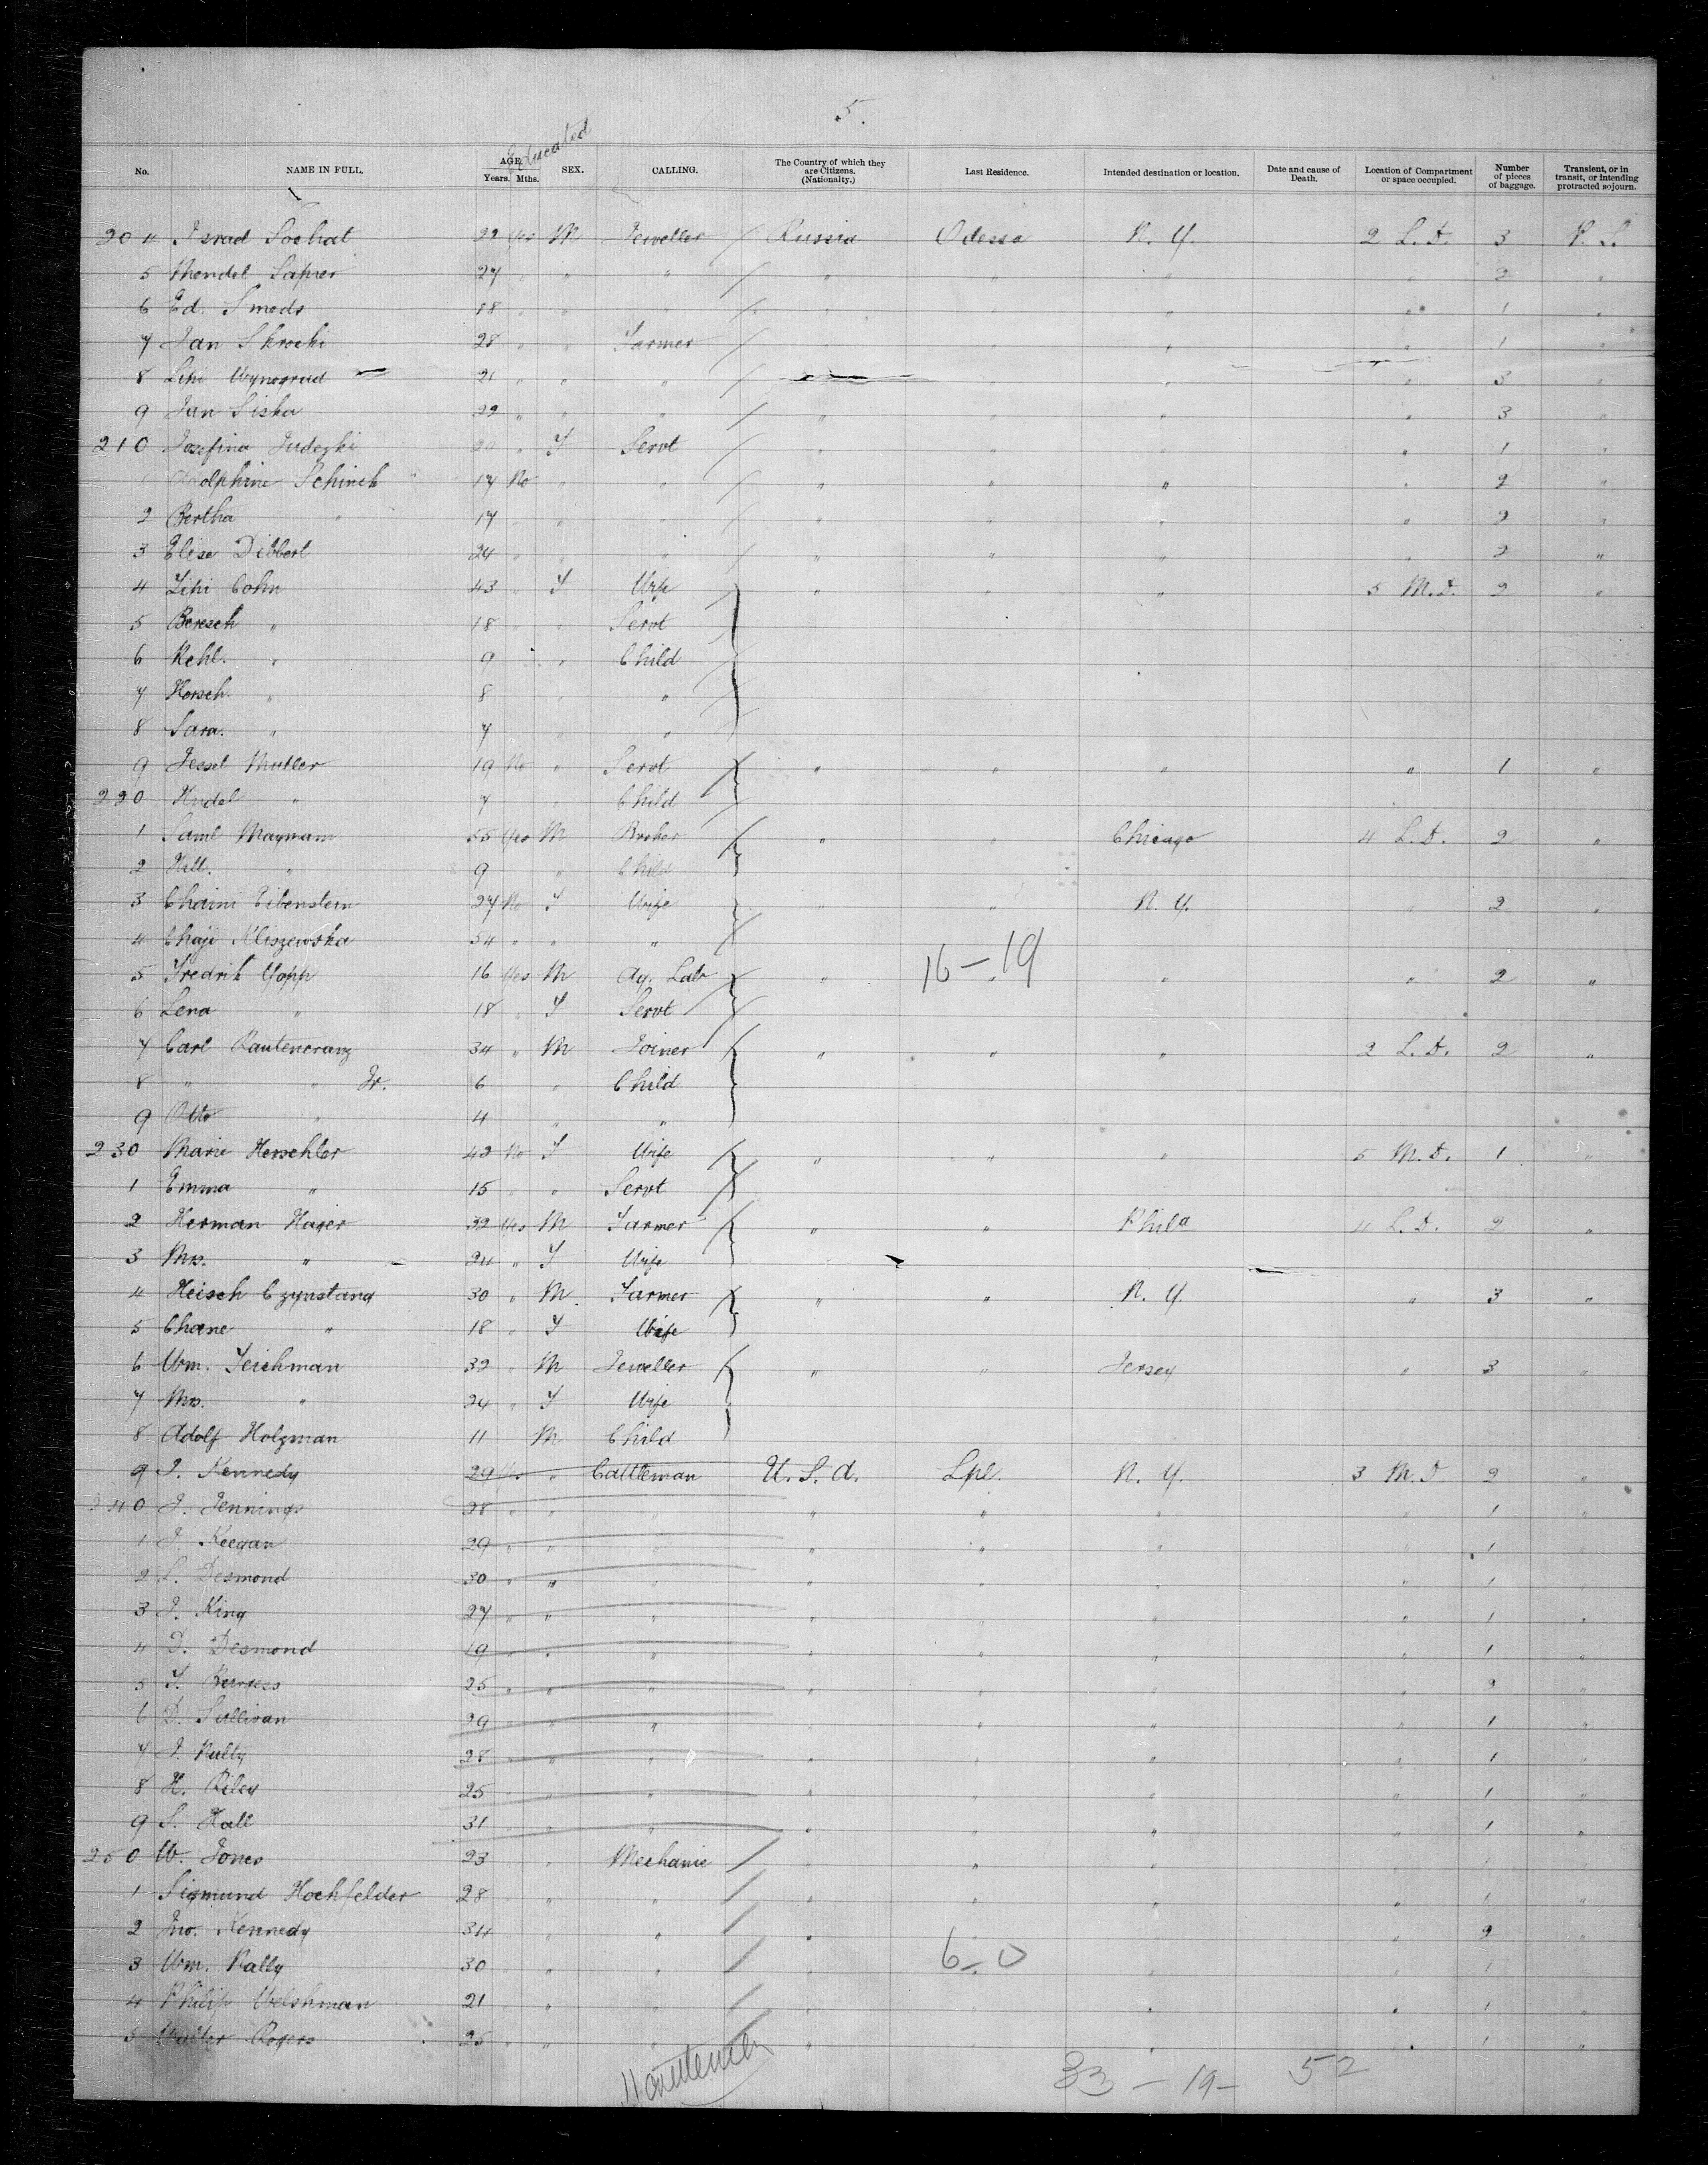 5.
Educated
No. NAME IN FULL. AGE Years. Mths. SEX. CALLING. The Country of which they are Citizens. (Nationality.) Last Residence. Intended destination or location. Date and cause of Death. Location of Compartment or space occupied. Number of pieces of baggage. Transient, or in transit, or intending protracted sojourn.
204 Israd Sochat 29 Yes M Jeweller / Russia Odessa N. Y. 2 L.D. 3 P. S.
5 Mendel Sapier 27 " " " / " " " " 2 "
6 Ed. Smeds 18 " " " / " " " " 1 "
7 Jan Skrocki 28 " " Farmer / " " " " 1 "
8 Lihi Wynogrud 21 " " " / " " " " 3 "
9 Jan Siska 22 " " " / " " " " 3 "
210 Josefina Judezki 20 " F Servt / " " " " 1 "
1 Adolphine Schinck 17 No " " / " " " " 2 "
2 Bertha " 17 " " " / " " " " 2 "
3 Elise Dibbert 24 " " " / " " " " 2 "
4 Lihi Cohn 43 " F Wife " " " 5 M.D. 2 "
5 Beresch " 18 " " Servt
6 Rehl. " 9 " Child
7 Hersch. " 8 " "
8 Sara. " 7 " "
9 Jessel Muller 19 No " Servt " " " " 1 "
220 Hudel " 7 " Child
1 Saml Maymam 55 Yes M Broker " " Chicago 4 L.D. 2 "
2 Hill. " 9 " Child
3 Chaini Eibenstein 27 No F Wife " " N. Y. " 2 "
4 Chaji Kliszewska 54 " " "
16-19
5 Fredrik Yopp 16 Yes M Ag. Lab " " " " 2 "
6 Lena " 18 " F Servt
7 Carl Rautencranz 34 " M Joiner " " " 2 L.D. 2 "
8 " " Jr. 6 " Child
9 Otto " 4 " "
230 Marie Herschler 42 No F Wife " " " 5 M.D. 1 "
1 Emma " 15 " " Servt
2 Herman Hager 32 Yes M Farmer " " Phila 4 L.D. 2 "
3 Mrs. " 24 " F Wife
4 Heisch Czynstang 30 " M Farmer " " N. Y. " 3 "
5 Chane " 18 " F Wife
6 Wm. Teichman 32 " M Jeweller " " Jersey " 3 "
7 Mrs. " 24 " F Wife
8 Adolf Holzman 11 M Child
9 J. Kennedy 29 Yes " Cattleman U. S. A. Lpl. N. Y. 3 M.D. 2 "
240 J. Jennings 28 " " " " " " " 1 "
1 J. Keegan 29 " " " " " " " 1 "
2 S. Desmond 30 " " " " " " " 1 "
3 J. King 27 " " " " " " " 1 "
4 D. Desmond 19 " " " " " " " 1 "
5 T. Burgess 25 " " " " " " " 2 "
6 D. Sullivan 29 " " " " " " " 1 "
7 J. Nulty 28 " " " " " " " 1 "
8 H. Riley 25 " " " " " " " 1 "
9 S. Hall 31 " " " " " " " 1 "
250 W. Jones 23 " " Mechanic / " " " " 1 "
1 Sigmund Hochfelder 28 " " " / " " " " 1 "
2 Jno. Kennedy 34 " " " / " " " " 2 "
3 Wm. Nally 30 " " " / " 6-0 " " 1 "
4 Philip Welshman 21 " " " / " " " " 1 "
5 Walter Rogers 25 " " " / " " " " 1 "
33 - 19 - 52